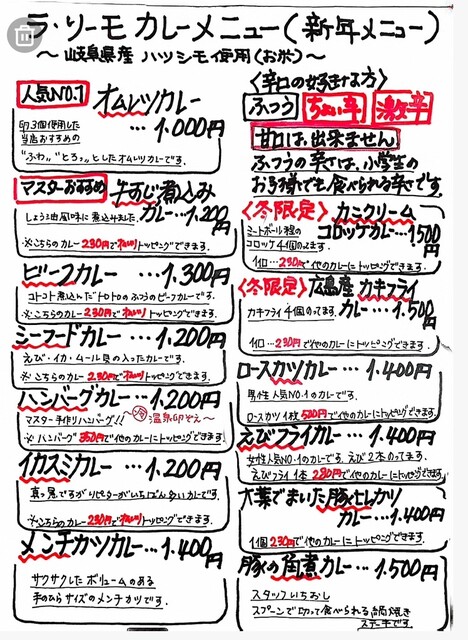 ラ・リーモ カレーメニュー(新年メニュー)
〜岐阜県産 ハツシモ使用(お米)〜
人気NO.1 オムレツカレー
…1,000円
卵3個使用した
当店おすすめの
"ふわッ" とろッッとしたオムレツカレーです。
マスターおすすめ 牛すじ煮込み
カレー…1,200円
しょう油風味に煮込みました。
※こちらのカレー230円でトッピングできます。
ビーフカレー …1,300円
コトコト煮込んだトロトロのふつうのビーフカレーです。
※こちらのカレー230円でトッピングできます。
シーフードカレー …1,200円
えび・イカ・ムール貝の入ったカレーです。
※こちらのカレー230円でトッピングできます。
ハンバーグカレー …1,200円
マスター手作りハンバーグ!! 温泉卵ぞえ〜
※ハンバーグ350円で他のカレーにトッピングできます
イカスミカレー …1,200円
真っ黒ですがリピターがいちばん多いカレーです。
※こちらのカレー230円でトッピングできます。
メンチカツカレー…1,400円
サクサクした ボリュームのある
手のひらサイズのメンチカツです。
〈辛口の好きな方〉
ふつう ちょい辛 激辛
甘口は、出来ません
ふつうの辛さは、小学生の
お子様でも食べられる辛さです。
〈冬限定〉 カニクリーム
コロッケカレー…1,500円
ミートボール程の
コロッケ4個のってます。
1コ…230円で他のカレーにトッピングできます。
〈冬限定〉 広島産 カキフライ
カレー…1,500円
カキフライ4個のってます。
1コ…230円で他のカレーにトッピングできます。
ロースカツカレー …1,400円
男性人気NO.1のカレーです。
ロースカツ1枚500円で他のカレーにトッピングできます。
えびフライカレー…1,400円
女性人気NO.1のカレーです。えび2本のってます。
えびフライ1本230円で他のカレーにトッピングできます。
大葉でまいた豚ヒレカツ
カレー…1,400円
1個230円で他のカレーにトッピングできます。
豚の角煮カレー…1,500円
スタッフいちおし
スプーンで切って食べられる
ステーキです。